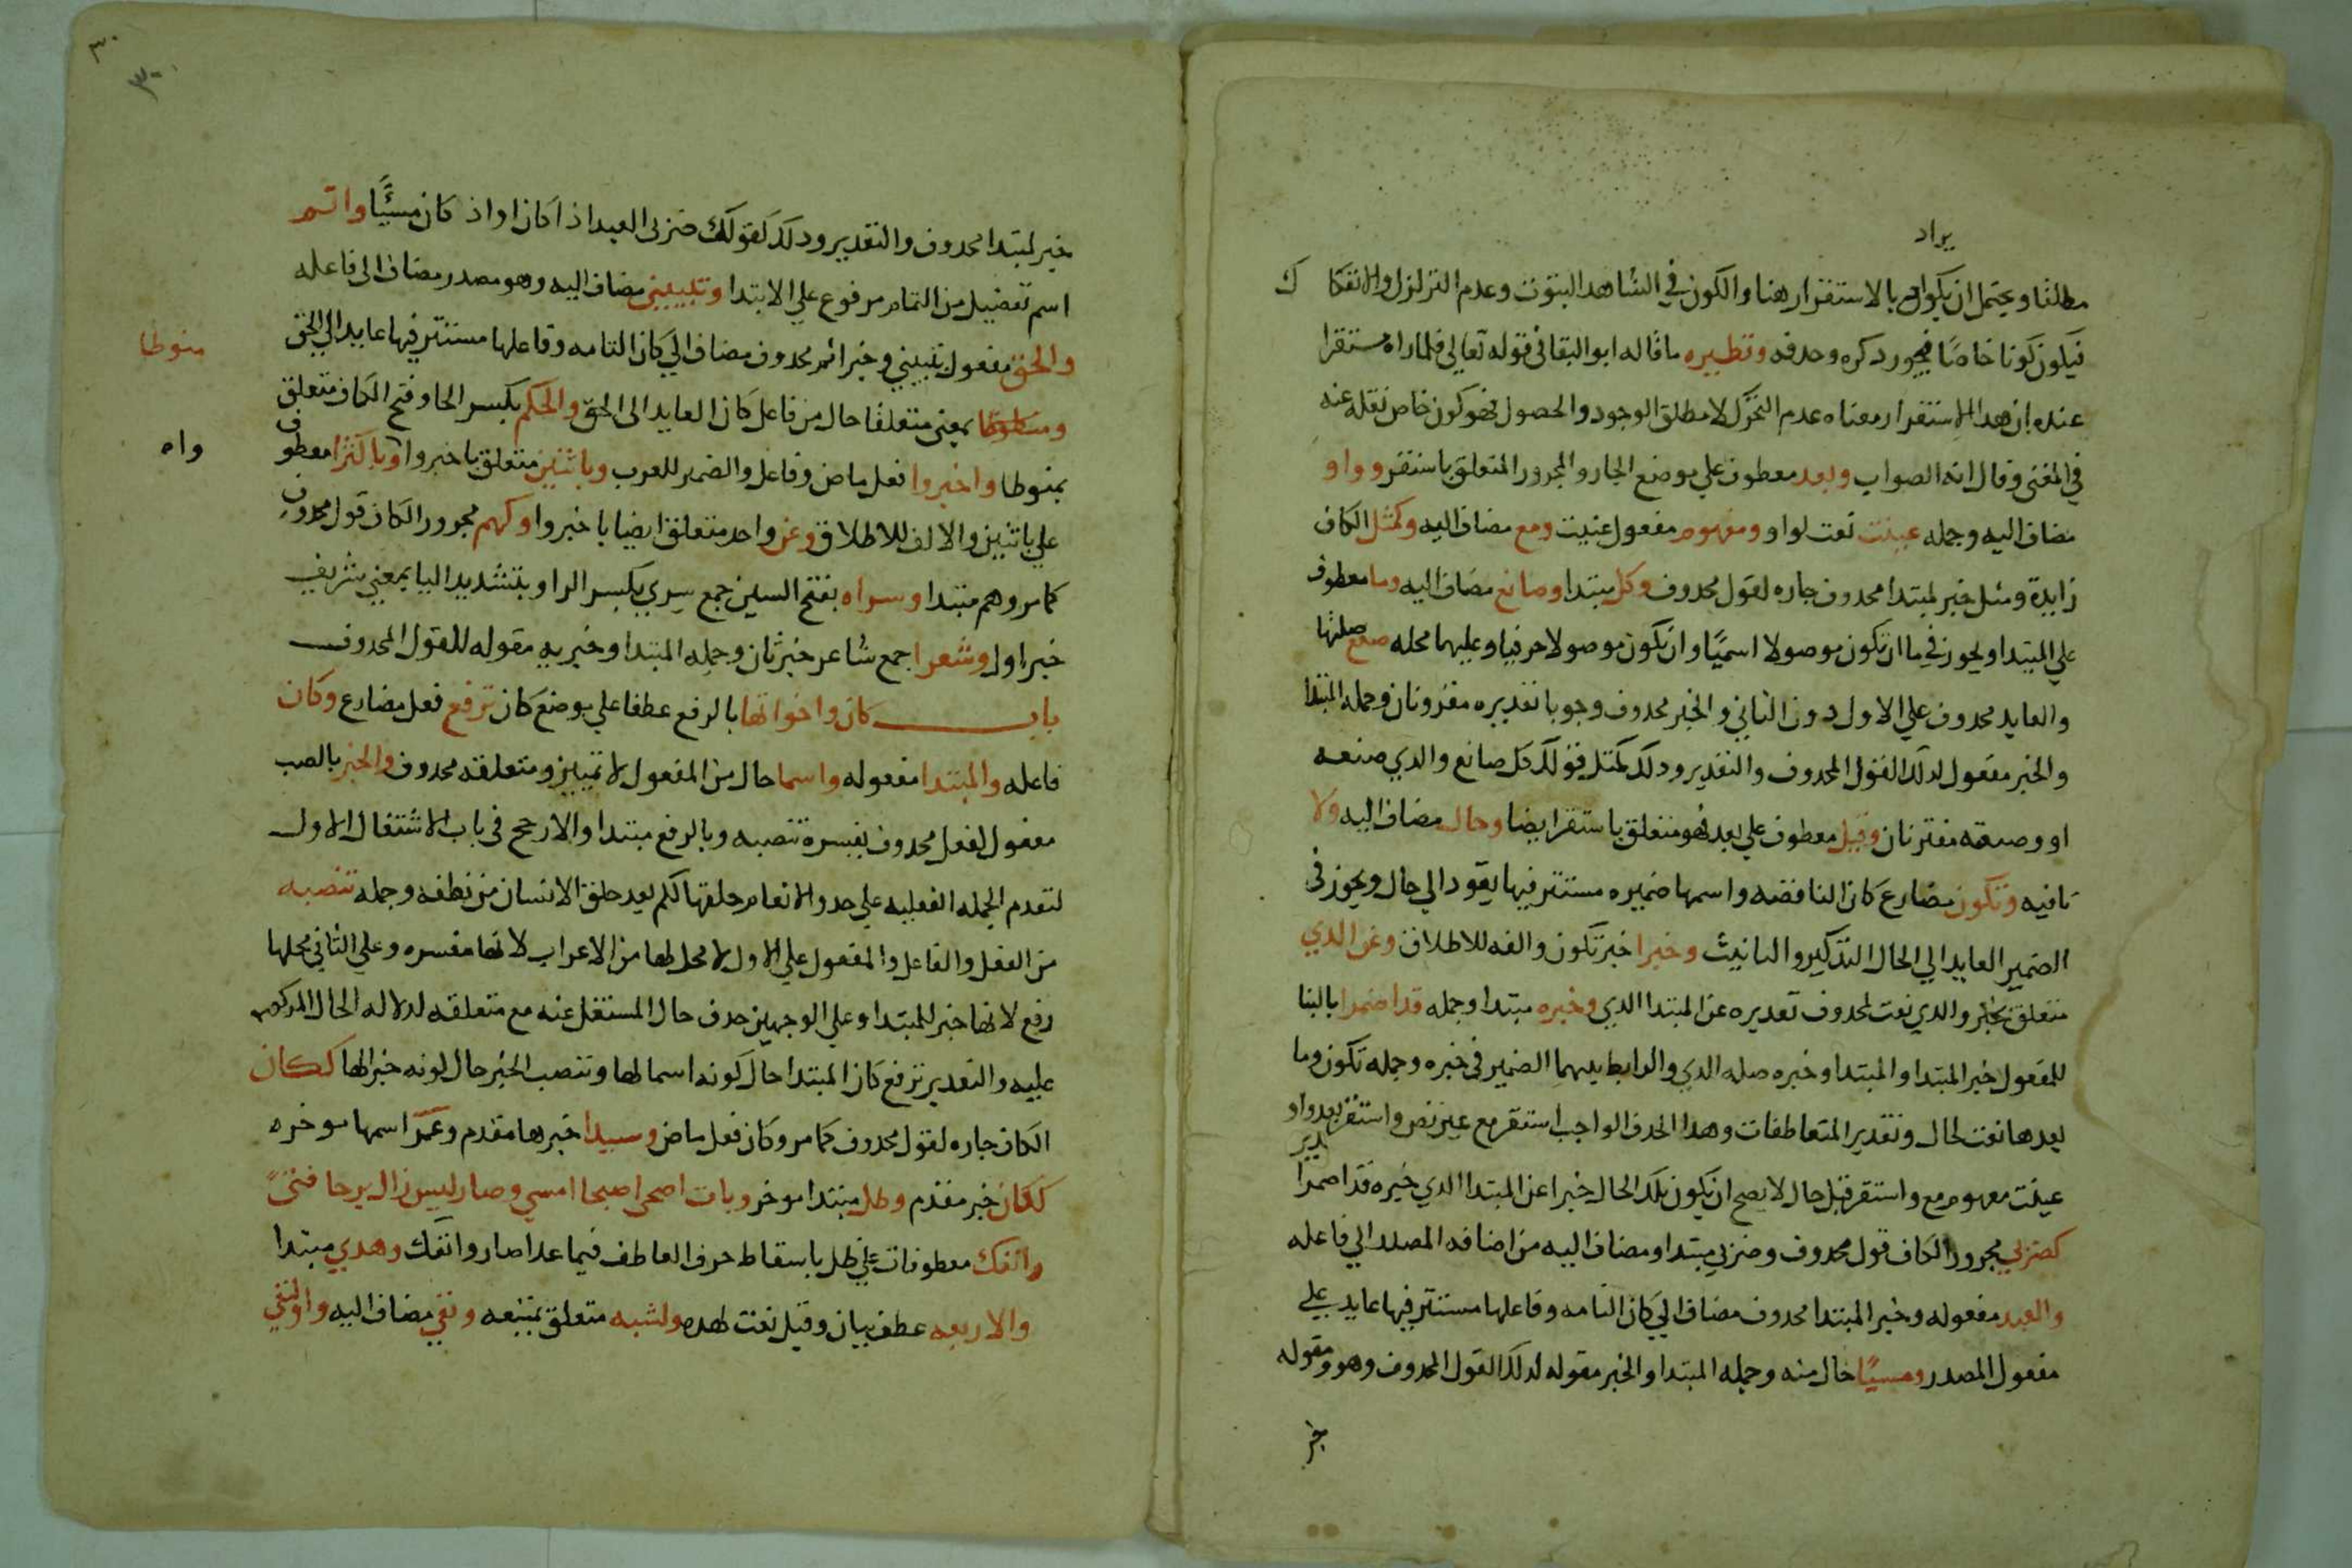 يراد
مطلقا ويحتمل ان يكون بالاستقرار هنا والكون في الشاهد الثبوت وعدم التزلزل والانفكا ك
فيكون كونا خاصًا فيجوز دكره وحدفه ونظيره ما قاله ابو البقا في قوله تعالى فلما راه مستقرا
عنده ان هدا الاستقرار معناه عدم التحرّك لا مطلق الوجود والحصول فهو كون خاص نقله عنه
في المغنى وقال انه الصواب وبعد معطوف علي موضع الجار والمجرور المتعلق باستقر وواو
مضاف اليه وجمله عينت نعت لواو ومفهوم مفعول عينت ومع مضاف اليه وكمثل الكاف
زايدة ومثل خبر لمبتدا محدوف جاره لقول محدوف وكل مبتدا وصانع مضاف اليه وما معطوف
علي المبتدا ويجوز في ما ان تكون موصولا اسميًا وان تكون موصولا حرفيا وعليهما محله صنع صلتها
والعايد محدوف علي الاول دون الثاني والخبر محدوف وجوبا تقديره مقرونان وجمله المبتدا
والخبر مقول لدلك القول المحدوف والتقدير ودلك كمثل قولك كل صانع والدي صنعه
او وصنعه مقترنان وقبل معطوف علي بعد فهو متعلق باستقر ايضا وحال مضاف اليه ولا
نافيه وتكون مضارع كان الناقصه واسمها ضميره مستتر فيها يعود الي حال ويجوز في
الضمير العايد الي الحال التدكير والتانيث وخبرا خبر تكون والفه للاطلاق وعن الدي
متعلق بخبر والدي نعت لمحدوف تقديره عن المبتدا الدي وخبره مبتدا وجمله قد اضمرا بالبنا
للمفعول خبر المبتدا والمبتدا وخبره صله الدي والرابط بينهما الضمير في خبره وجمله تكون وما
بعدها نعت لحال وتقدير المتعاطفات وهدا الحدف الواجب استقر مع عين نص واستقر بعد واو
عينت مفهوم مع واستقر قبل حال لا يصح ان يكون تلك الحال خبرا عن المبتدا الدي خبره قد اضمرا
كضربي مجرور الكاف قول محدوف وضربي مبتدا ومضاف اليه من اضافه المصدر الي فاعله
والعبد مفعوله وخبر المبتدا محدوف مضاف الي كان التامه وفاعلها مستتر فيها عايد علي
مفعول المصدر ومسيًا حال منه وجمله المبتدا والخبر مقوله لدلك القول المحدوف وهو ومقوله
خبر
٣٠
٣٠
خبر لمبتدا محدوف والتقدير ودلك كقولك ضربي العبد اذا كان او اذ كان مسيئًا واتم
اسم تفضيل من التمام مرفوع علي الابتدا وتبييني مضاف اليه وهو مصدر مضاف الى فاعله
والحق مفعول تبييني وخبر اتم محدوف مضاف الي كان التامه وفاعلها مستتر فيها عايد الي الحق
منوطا
ومنوطا بمعنى متعلقا حال من فاعل كان العايد الى الحق والحكم بكسر الحا وفتح الكاف متعلق
بمنوطا واخبروا فعل ماض وفاعل والضمير للعرب وباثنين متعلق باخبروا اوباكثرا معطوف
واه
علي باثنين والالف للاطلاق وعن واحد متعلق ايضا باخبروا وكهم مجرور الكاف قول محدوف
كما مر وهم مبتدا وسراه بفتح السين جمع سري بكسر الرا وبتشديد اليا بمعني شريف
خبر اول وشعرا جمع شاعر خبر ثان وجمله المبتدا وخبريه مقوله للقول المحدوف
باب كان واخواتها بالرفع عطفا علي موضع كان ترفع فعل مضارع وكان
فاعله والمبتدا مفعوله واسما حال من المفعول لا تمييز ومتعلقه محدوف والخبر بالنصب
مفعول لفعل محدوف يفسره تنصبه وبالرفع مبتدا والارجح في باب الاشتغال الاول
لتقدم الجمله الفعليه علي حد والانعام خلقها لكم بعد خلق الانسان من نطفه وجمله تنصبه
من الفعل والفاعل والمفعول علي الاول لا محل لها من الاعراب لانها مفسره وعلي الثاني محلها
رفع لانها خبر للمبتدا وعلي الوجهين حدف حال المشتغل عنه مع متعلقه لدلاله الحال المدكوره
عليه والتقدير ترفع كان المبتدا حال كونه اسما لها وتنصب الخبر حال كونه خبرا لها ككان
الكاف جاره لقول محدوف كما مر وكان فعل ماض وسيدا خبرها مقدم وعمر اسمها موخره
ككان خبر مقدم وظل مبتدا موخر وبات اضحى اصبحا امسي وصار ليس زال برحا فتئ
وانفك معطوفات علي ظل باسقاط حرف العاطف فيما عدا صار وانفك وهدي مبتدا
والاربعه عطف بيان وقيل نعت لهده ولشبه متعلق بمتبعه ونفي مضاف اليه واو لنفي